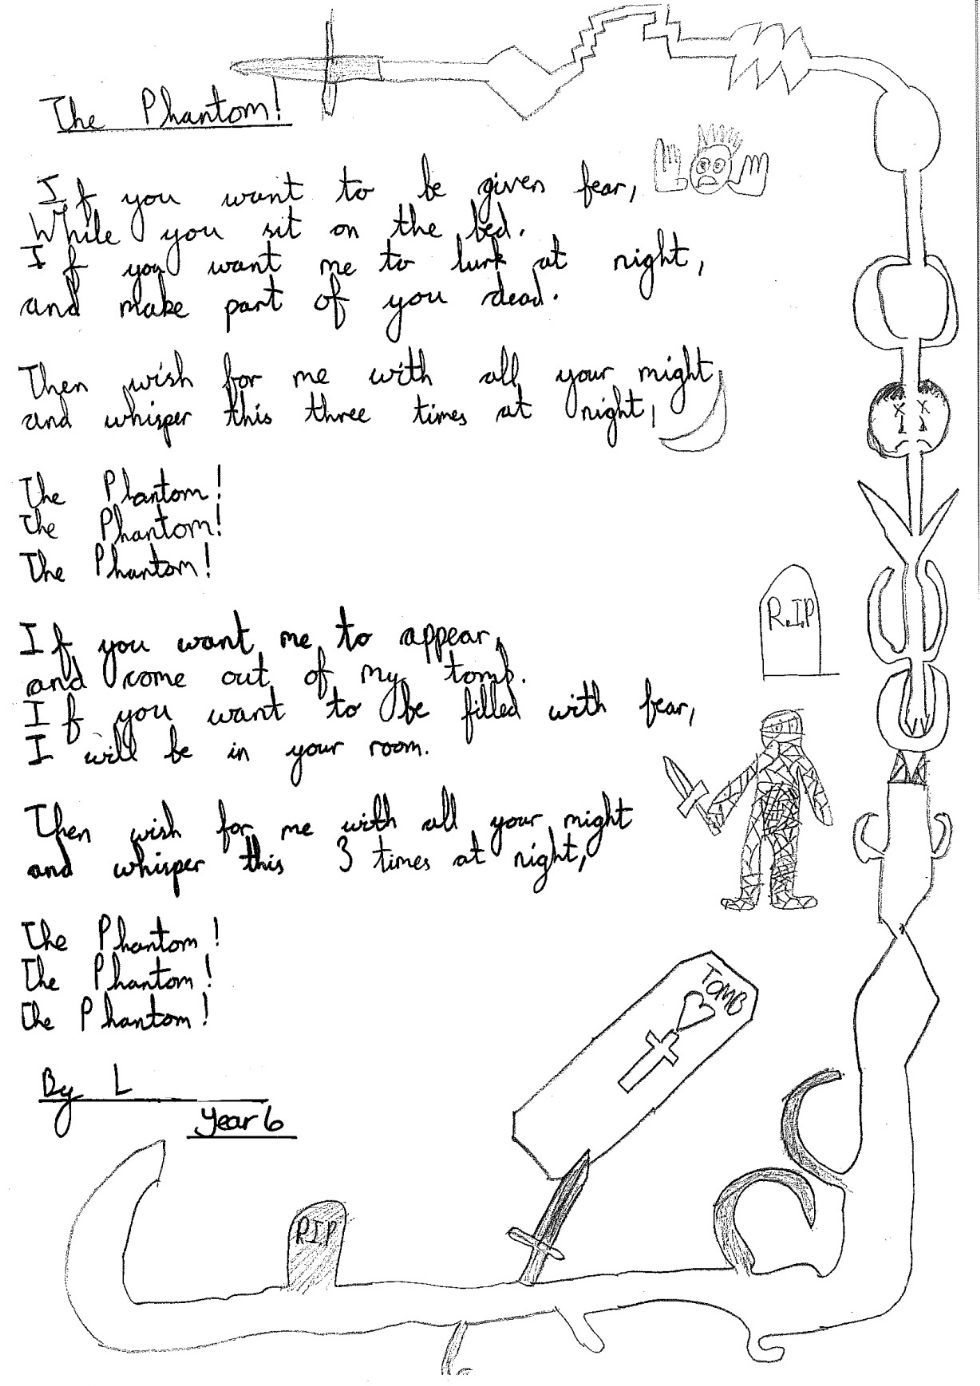 The Phantom!
If you want to be given fear,
While you sit on the bed.
If you want me to lurk at night,
and make part of you dead.
Then wish for me with all your might,
and whisper this three times at night,
The Phantom!
The Phantom!
The Phantom!
R.I.P
If you want me to appear,
and come out of my tomb.
If you want to be filled with fear,
I will be in your room.
Then wish for me with all your might
and whisper this 3 times at night,
The Phantom!
The Phantom!
The Phantom!
TOMB
By L
Year 6
R.I.P